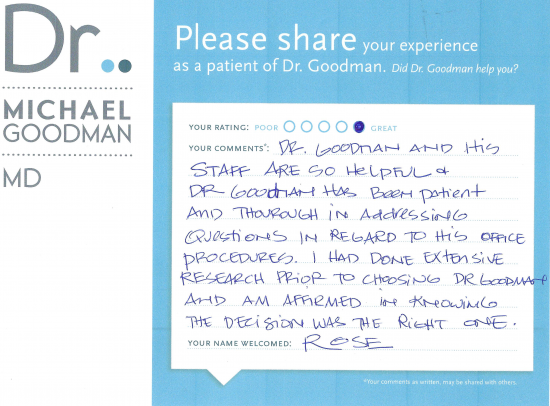 Dr..
MICHAEL
GOODMAN
MD
Please share your experience
as a patient of Dr. Goodman. Did Dr. Goodman help you?
YOUR RATING: POOR GREAT
YOUR COMMENTS*: DR. GOODMAN AND HIS
STAFF ARE SO HELPFUL &
DR GOODMAN HAS BEEN PATIENT
AND THOUROUGH IN ADDRESSING
QUESTIONS IN REGARD TO HIS OFFICE
PROCEDURES. I HAD DONE EXTENSIVE
RESEARCH PRIOR TO CHOOSING DR GOODMAN
AND AM AFFIRMED IN KNOWING
THE DECISION WAS THE RIGHT ONE.
YOUR NAME WELCOMED: ROSE
*Your comments as written, may be shared with others.